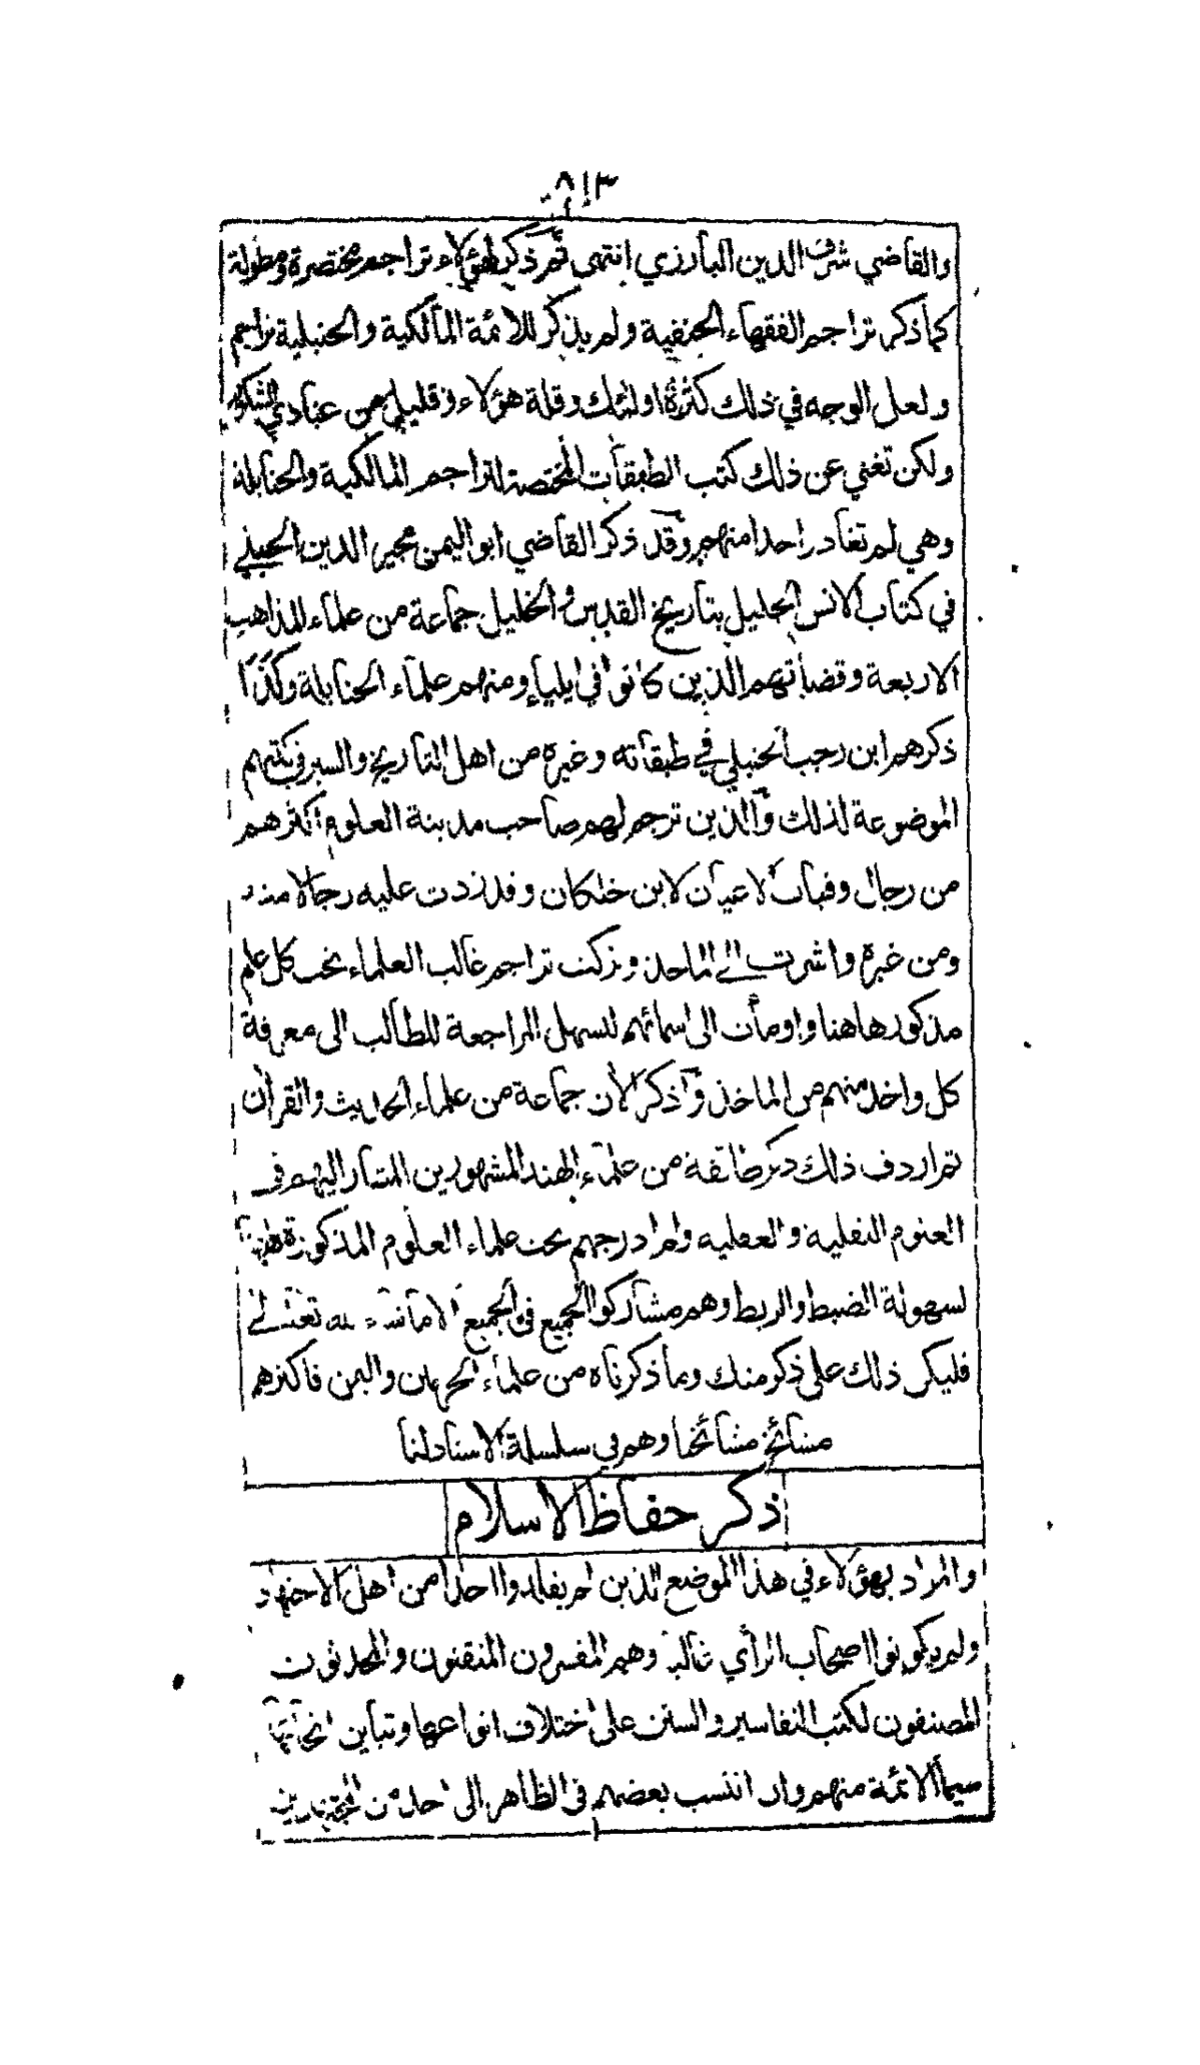 ٨١٣
والقاضي شرف الدين البارزي انتهى ثم ذكر لهؤلاء تراجم مختصرة ومطولة
كما ذكر تراجم الفقهاء الحنفية ولم يذكر للائمة المالكية والحنبلية تراجم
ولعل الوجه في ذلك كثرة اولئك وقلة هؤلاء وقليل من عبادي الشكور
ولكن تغني عن ذلك كتب الطبقات المختصة لتراجم المالكية والحنابلة
وهي لم تغادر احدا منهم وقد ذكر القاضي ابو اليمن مجير الدين الحنبلي
في كتاب الانس الجليل بتاريخ القدس والخليل جماعة من علماء المذاهب
الاربعة وقضاتهم الذين كانوا في ايلياء ومنهم علماء الحنابلة وكذا
ذكرهم ابن رجب الحنبلي في طبقاته وغيره من اهل التاريخ والسير في كتبهم
الموضوعة لذلك والذين ترجم لهم صاحب مدينة العلوم اكثرهم
من رجال وفيات الاعيان لابن خلكان وقد زدت عليه رجالا منه
ومن غيره واشرت الى الماخذ وتركت تراجم غالب العلماء تحت كل علم
مذكور هاهنا واومأت الى اسمائهم لتسهل المراجعة للطالب الى معرفة
كل واحد منهم من الماخذ واذكر الآن جماعة من علماء الحديث والقرآن
ثم اردف ذلك ذكر طائفة من علماء الهند المشهورين المشار اليهم في
العلوم النقلية والعقلية ولم ادرجهم تحت علماء العلوم المذكورة
لسهولة الضبط والربط وهم مشاركوا الجميع في الجميع الا ما شاء الله تعالى
فليكن ذلك على ذكر منك وما ذكرناه من علماء الحرمين واليمن فاكثرهم
مشائخ مشائخنا وهم في سلسلة الاسناد لنا
ذكر حفاظ الاسلام
والمراد بهؤلاء في هذا الموضع الذين لم يقلدوا احدا من اهل الاجتهاد
ولم يكونوا اصحاب الرأي غالبا وهم المفسرون المتقنون والمحدثون
المصنفون لكتب التفاسير والسنن على اختلاف انواعها وتباين انحائها
سيما الائمة منهم وان انتسب بعضهم في الظاهر الى احد من المجتهدين